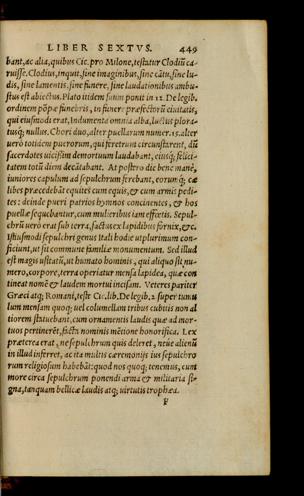 LIBER SEXTVS. 449
bant, ac alia, quibus Cic. pro Milone, testatur Clodiũ ca-
ruisse. Clodius, inquit, sine imaginibus, sine cãtu, sine lu-
dis, sine lamentis, sine funere, sine laudationibus ambu-
stus est abiectus. Plato itidem suum ponit in 12. De legib.
ordinem põpæ funebris, in funere præfectorũ ciuitatis,
qui eiusmodi erat, Indumenta omnia alba, luctus plora-
tusq; nullus. Chori duo, alter puellarum numer. 15. alter
uerò totidem puerorum, qui feretrum circunstarent, dũ
sacerdotes uicissim demortuum laudabant, eiusq; felici-
tatem totũ diem decãtabant. At postro die bene manè,
iuniores capulum ad sepulchrum ferebant, eorumq; cæ
libes præcedebãt equites cum equis, & cum armis pedi-
tes: deinde pueri patrios hymnos concinentes, & hos
puellæ sequebantur, cum mulieribus iam effœtis. Sepul-
chrũ uerò erat sub terra, factũ ex lapidibus fornix, &c.
Istiusmodi sepulchri genus Itali hodie utplurimum con-
ficiunt, ut sit commune familiæ monumentum. Sed illud
est magis usitatũ, ut humato hominis, qui aliquo sit nu-
mero, corpore, terra operiatur mensa lapidea, quæ con
tineat nomẽ & laudem mortui incisam. Veteres pariter
Græci atq; Romani, teste Cic. lib. De legib. 2 super tumu
lum mensam quoq; uel columellam tribus cubitis non al
tiorem statuebant, cum ornamentis laudis quæ ad mor-
tuos pertineret, facta nominis mẽtione honorifica. Lex
præterea erat, ne sepulchrum quis deleret, neue alienũ
in illud inferret, ac ita multis cæremonijs ius sepulchro
rum religiosum habebãt: quod nos quoq; tenemus, cunt
more circa sepulchrum ponendi arma & militaria si-
gna, tanquam bellicæ laudis atq; uirtutis trophæa.